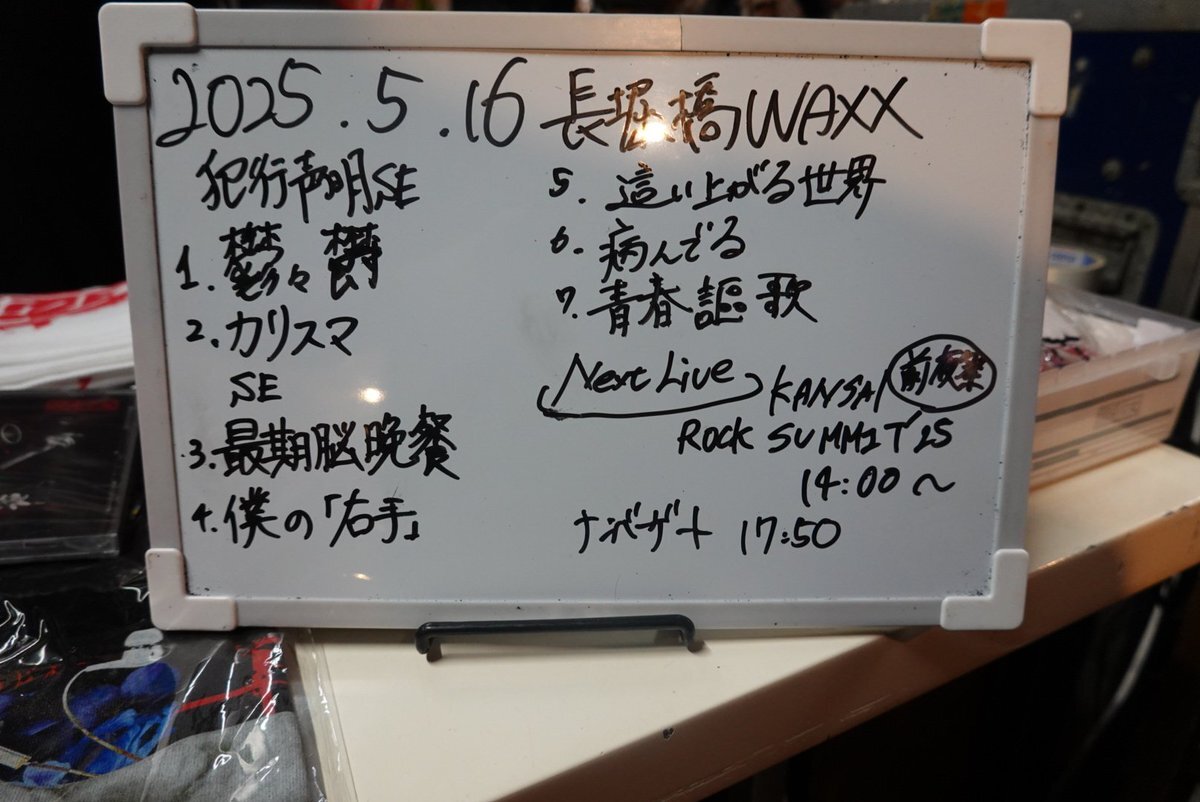 2025.5.16 長堀橋WAXX
犯行声明SE
1. 鬱々鬱
2. カリスマ
SE
3. 最期脳晩餐
4. 僕の「右手」
5. 這い上がる世界
6. 病んでる
7. 青春謳歌
Next Live
KANSAI 前夜祭
Rock SUMMIT'25
14:00〜
ナンバゲート 17:50